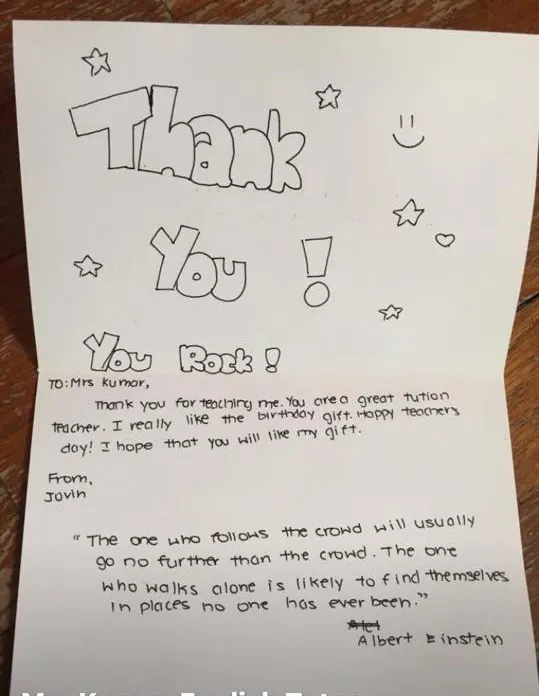 Thank
You !
You Rock !
TO: Mrs Kumar,
Thank you for teaching me. You are a great tution
teacher. I really like the birthday gift. Happy teachers
day! I hope that you will like my gift.
From,
Jovin
“ The one who follows the crowd will usually
go no further than the crowd. The one
who walks alone is likely to find themselves
in places no one has ever been.”
Albert Einstein